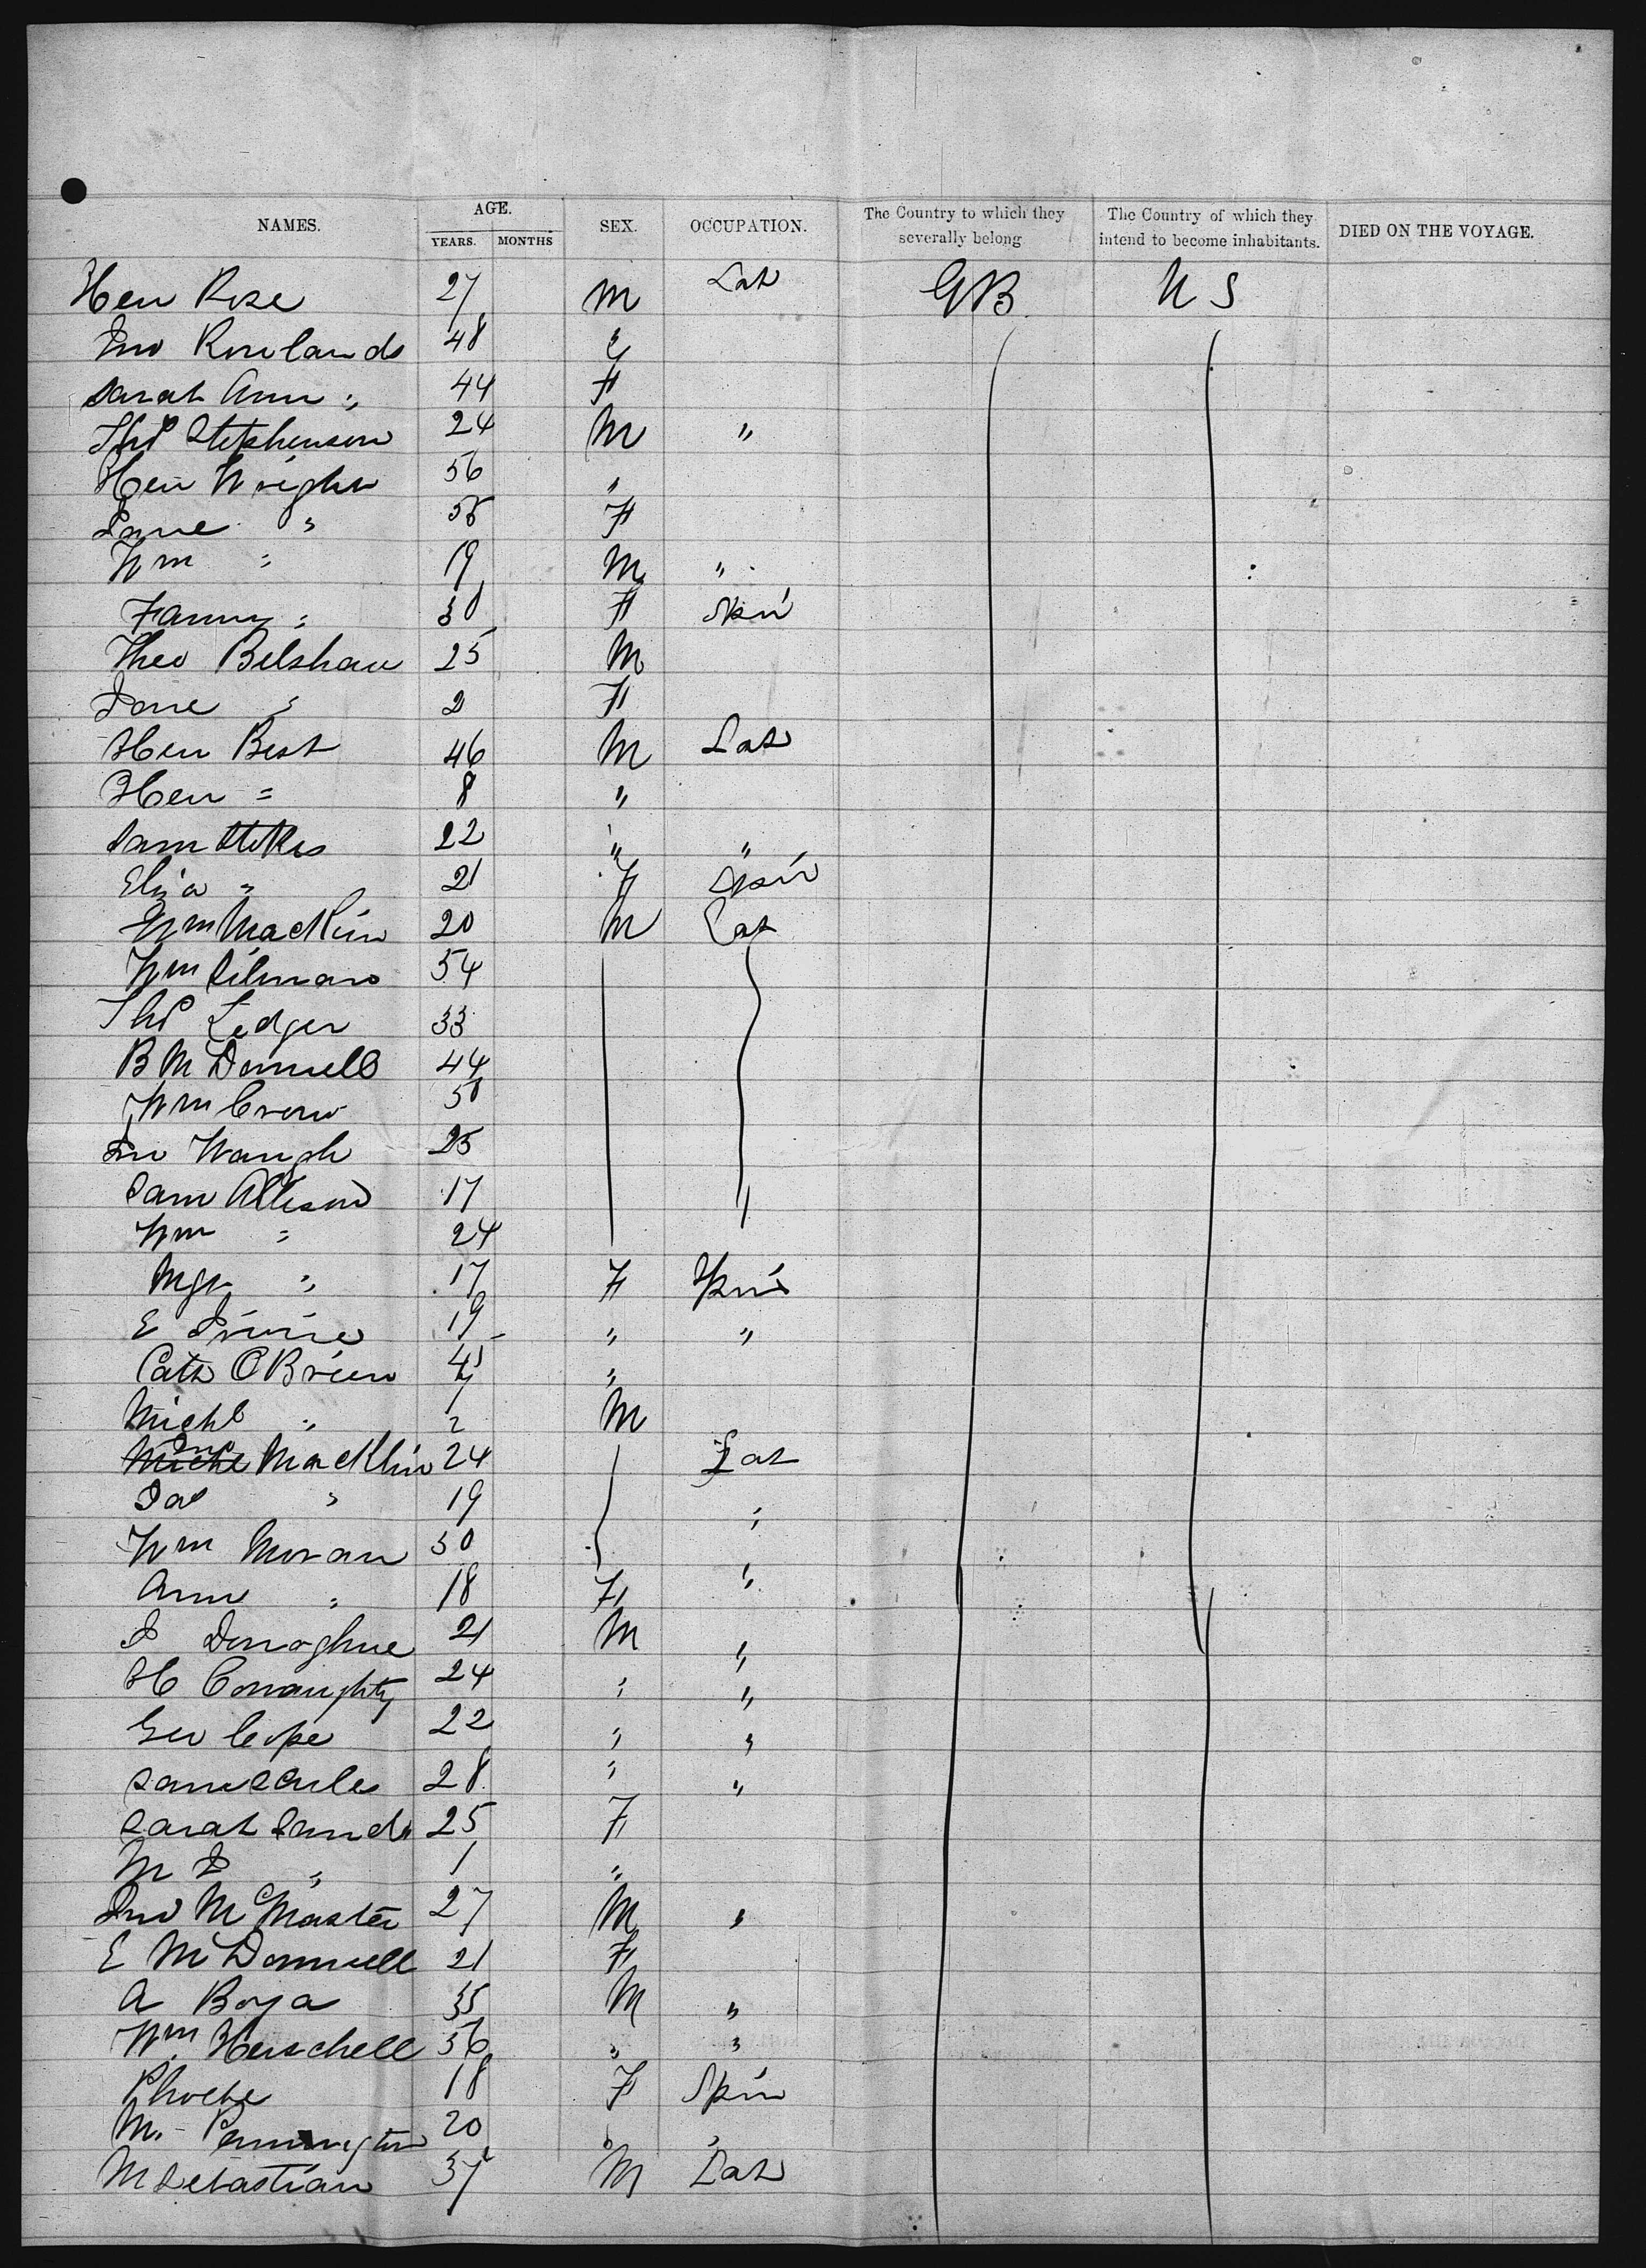 NAMES. AGE. YEARS. MONTHS SEX. OCCUPATION. The Country to which they severally belong The Country of which they intend to become inhabitants. DIED ON THE VOYAGE.
Hen Rose 27 M Lab GB U S
Jno Rowlands 48 "
Sarah Ann " 44 F
Thos Stephenson 24 M "
Hen Wright 56 "
Jane " 55 F
Wm " 19 M "
Fanny " 30 F Spin
Theo Belshaw 25 M
Jane " 2 F
Hen Best 46 M Lab
Hen " 8 "
Sam Stokes 22 " "
Eliza " 21 F Spin
Wm Macklin 20 M Lab
Wm Silman 54
Thos Ledger 33
B McDonnell 44
Wm Crow 50
Jno Waugh 25
Sam Allison 17
Wm " 24
Mgt " 17 F Spin
E Irvine 19 " "
Cath O'Brien 45 "
Michl " 2 M
Jno Macklin 24 Lab
Jas " 19 "
Wm Moran 50
Ann " 18 F "
J Donoghue 21 M "
H Conaughty 24 " "
Geo Cope 22 " "
Sam Earle 28 " "
Sarah Sands 25 F
M J " 1 "
Jno McMaster 27 M "
E McDonnell 21 F
A Boya 35 M "
Wm Herschell 56 " "
Phoebe 18 F Spin
M. Pennington 20 " "
M Sebastian 37 M Lab